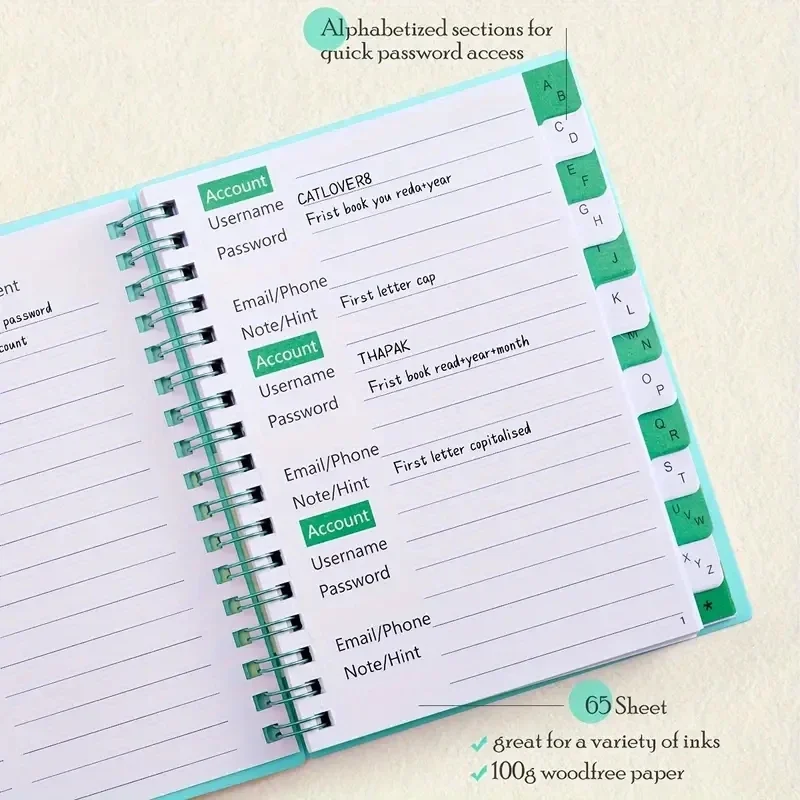 Alphabetized sections for
quick password access
ent
password
count
Account
Username CATLOVER8
Password Frist book you reda+year
Email/Phone
Note/Hint First letter cap
Account
Username THAPAK
Password Frist book read+year+month
Email/Phone
Note/Hint First letter copitalised
Account
Username
Password
Email/Phone
Note/Hint
1
A B
C D
E F
G H
I J
K L
M N
O P
Q R
S T
U V W
X Y Z
*
65 Sheet
great for a variety of inks
100g woodfree paper